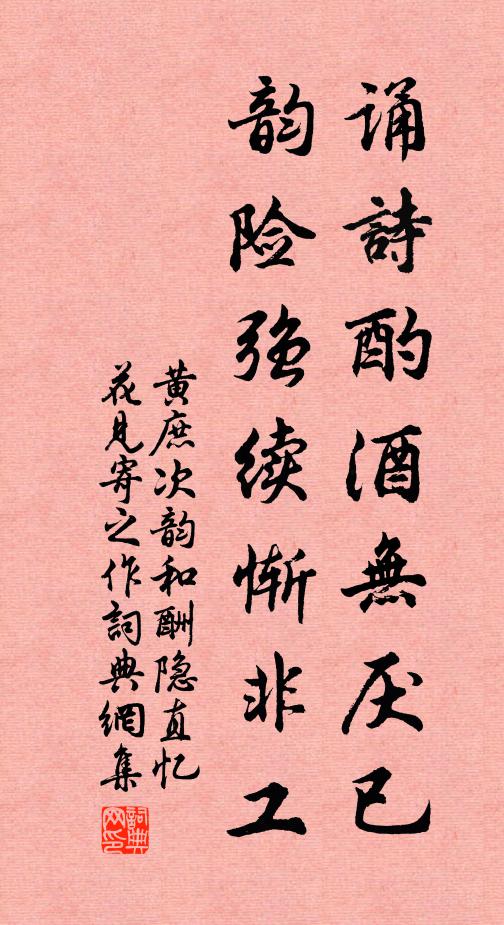 诵詩酌酒無厌已
韵险强续惭非工
黄庶次韵和酬隐直忆
花见寄之作詞典網集
詞典网印